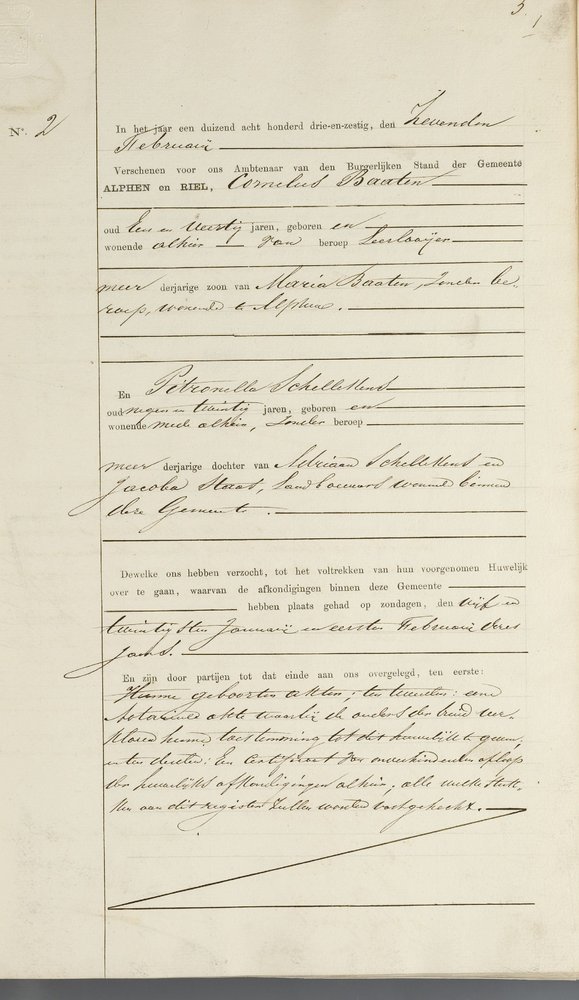 3.
1
N°. 2
In het jaar een duizend acht honderd drie-en-zestig, den Zevenden
Februarii
Verschenen voor ons Ambtenaar van den Burgerlijken Stand der Gemeente
ALPHEN en RIEL, Cornelus Baaten
oud Een en Veertig jaren, geboren en
wonende alhier van beroep Leerlooijer
meer derjarige zoon van Maria Baaten, zonder be-
roep, wonende te Alphen.
En Petronella Schellekens
oud negen en twintig jaren, geboren en
wonende mede alhier, zonder beroep
meer derjarige dochter van Adriaan Schellekens en
Jacoba Staat, Landbouwers wonende binnen
deze Gemeente.
Dewelke ons hebben verzocht, tot het voltrekken van hun voorgenomen Huwelijk
over te gaan, waarvan de afkondigingen binnen deze Gemeente
hebben plaats gehad op zondagen, den vijf en
twintigsten Januarij en eersten Februarii dezes
Jaars.
En zijn door partijen tot dat einde aan ons overgelegd, ten eerste:
Hunne geboorten akten; ten tweeden: eene
Notarieele akte waarbij de ouders der bruid ver-
klaren hunne toestemming tot dit huwelijk te geven,
en ten derden: Een certificaat van onverhinderden afloop
der huwelijks afkondigingen alhier, alle welke stuk-
ken aan dit register zullen worden vastgehecht.